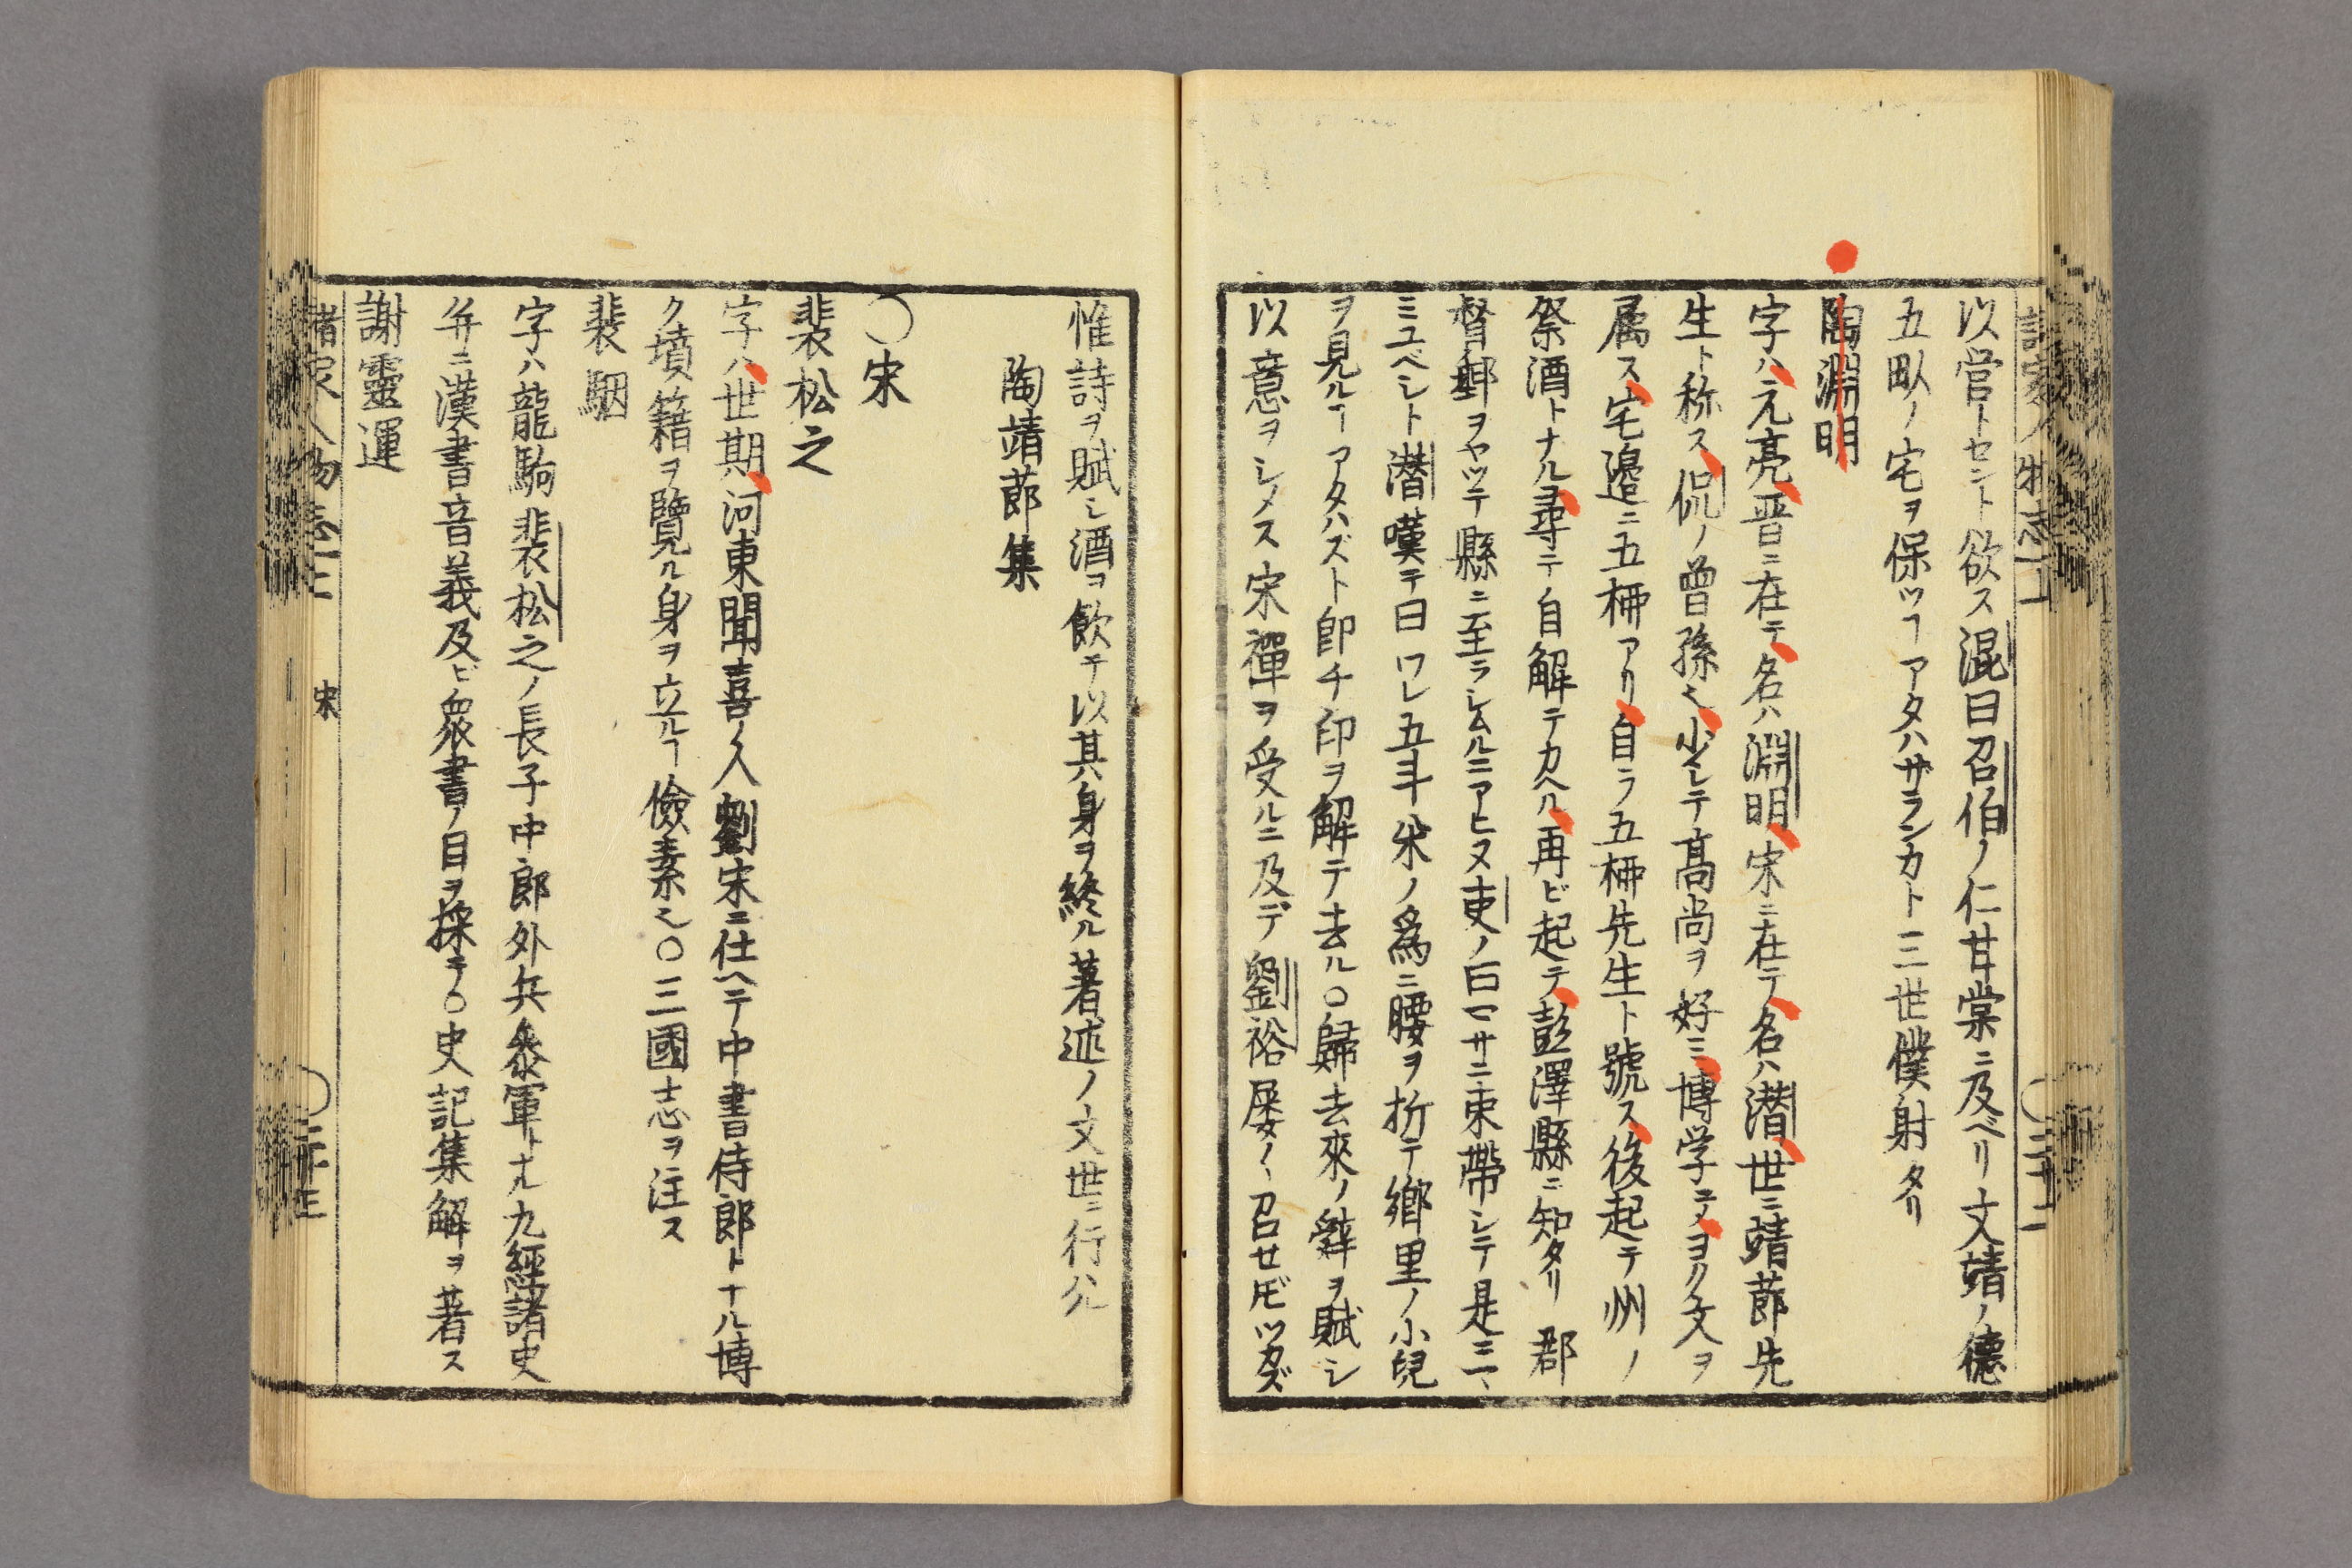 以営トセント欲ス混曰召伯ノ仁甘棠ニ及ベリ文靖ノ德
五畝ノ宅ヲ保ツヿアタハサランカト三世僕射タリ
陶淵明
字ハ元亮晋ニ在テ名ハ淵明宋ニ在テ名ハ潜世ニ靖莭先
生ト称ス侃ノ曽孫也少シテ髙尚ヲ好ミ博学ニメヨク文ヲ
属ス宅邉ニ五栁アリ自ラ五栁先生ト號ス後起テ州ノ
祭酒トナル尋テ自解テカヘル再ビ起テ彭澤縣ニ知タリ郡
督郵ヲヤツテ縣ニ至ラシムルニアヒヌ吏ノ曰マサニ束帶シテ是ニマ
ミユベシト潜嘆テ曰ワレ五斗米ノ爲ニ腰ヲ折テ郷里ノ小兒
ヲ見ルヿアタハズト卽チ印ヲ解テ去ル〇歸去來ノ辭ヲ賦シ
以意ヲシメス宋禪ヲ受ルニ及デ劉裕屡〻召セ𪜈ツカズ
惟詩ヲ賦シ酒ヲ飲テ以其身ヲ終ル著述ノ文世ニ行ハル
陶靖莭集
〇宋
裴松之
字ハ世期河東聞喜ノ人劉宋ニ仕ヘテ中書侍郎トナル博
ク墳籍ヲ覽ル身ヲ立ルヿ儉素也〇三國志ヲ注ス
裴駰
字ハ龍駒裴松之ノ長子中郎外兵叅軍トナル九經諸史
幷ニ漢書音義及ビ衆書ノ目ヲ採テ〇史記集解ヲ著ス
謝靈運
諸家人物志上 宋 〇三十三